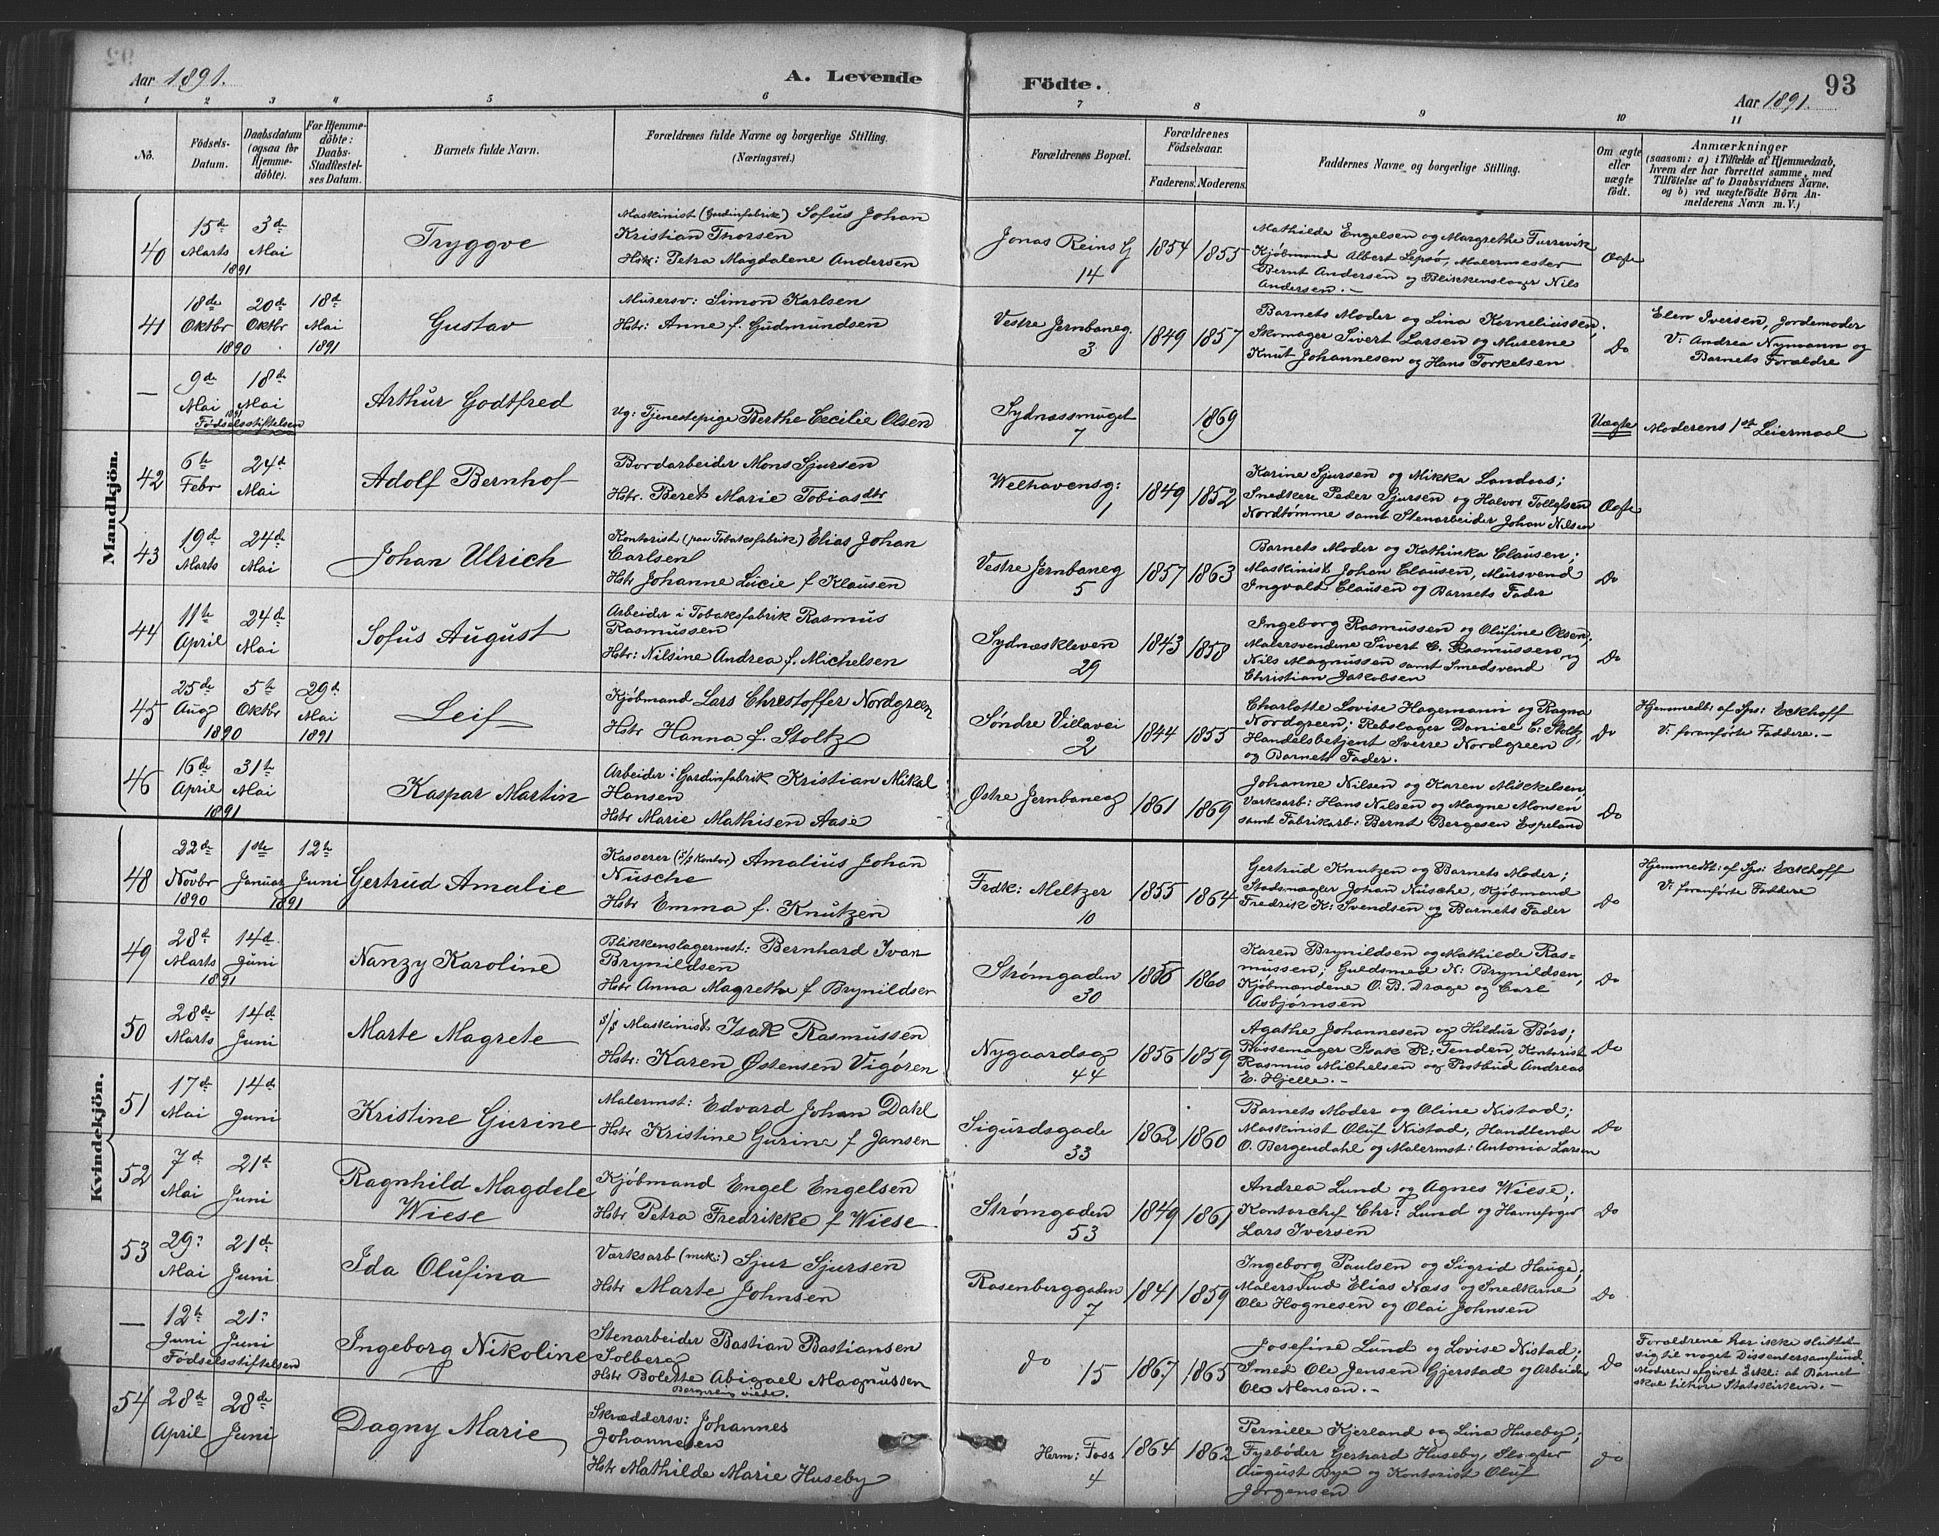 Aar 1891.
A. Levende Födte.
Aar 1891.
93
1 2 3 4 5 6 7 8 9 10 11
No.
Födsels-Datum.
Daabsdatum (ogsaa for Hjemmedöbte).
For Hjemmedöbte: Daabs-Stadfæstelses Datum.
Barnets fulde Navn.
Forældrenes fulde Navne og borgerlige Stilling. (Næringsvei.)
Forældrenes Bopæl.
Forældrenes Födselsaar.
Faderens. Moderens.
Faddernes Navne og borgerlige Stilling.
Om ægte eller uægte födt.
Anmærkninger
(saasom: a) i Tilfælde af Hjemmedaab,
hvem der har forrettet samme, med
Tilföielse af to Daabsvidners Navne,
og b) ved uægtefödte Börn An-
melderens Navn m. V.)
Mandkjön.
40
15de Marts 1891
3de Mai
Tryggve
Maskinist (Gardinfabrik) Sofus Johan
Kristian Thorsen
Hst: Petra Magdalene Andersen
Jonas Reins G
14
1854 1855
Mathilde Engelsen og Margrethe Furrevik
Kjøbmand Albert Lepsø, Malermester
Bernt Andersen og Blikkenslager Nils
Andersen.-
Ægte
41
18de Oktbr 1890
20de Oktbr
18de Mai 1891
Gustav
Murersv: Simon Karlsen
Hstr: Anne f. Gudmundsen
Vestre Jernbaneg.
3
1849 1857
Barnets Moder og Lina Korneliussen,
Skomager Sivert Larsen og Murerne
Knut Johannesen og Hans Torkelsen
Do
Elen Iversen, Jordemoder
V: Andrea Nymann og
Barnets Forældre
—
9de Mai 1891
18de Mai
Fødselsstiftelsen
Arthur Godtfred
Ug: Tjenestepige Berthe Cecilie Olsen
Sydnæssmuget
7
1869
Uægte
Moderens 1st Leiermaal
42
6te Febr
24de Mai
Adolf Bernhof
Bordarbeider Mons Sjursen
Hstr. Beret Marie Tobiasdtr
Welhavensg:
1
1849 1852
Karine Sjursen og Mikka Landaas;
Snedkere Peder Sjursen og Halvor Tollefsen
Nordtømme samt Stenarbeider Johan Nilsen
Ægte
43
19de Marts
24de Mai
Johan Ulrich
Kontorist (paa Tobaksfabrik) Elias Johan
Carlsen
Hstr Johanne Lucie f Klausen
Vestre Jernbaneg
5
1857 1863
Barnets Moder og Kathinka Clausen;
Maskinist Johan Clausen, Mursvend
Ingvald Clausen og Barnets Fader
Do
44
11te April
24de Mai
Sofus August
Arbeider i Tobaksfabrik Rasmus
Rasmussen
Hstr: Nilsine Andrea f. Michelsen
Sydnæskleven
29
1843 1858
Ingeborg Rasmussen og Olufine Olsen;
Malersvendene Sivert C. Rasmussen og
Nils Magnussen samt Smedsvend
Christian Jakobsen
Do
45
25de Aug 1890
5te Oktbr
29de Mai 1891
Leif
Kjøbmand Lars Christoffer Nordgreen
Hstr Hanna f. Stoltz
Søndre Villavei
2
1844 1855
Charlotte Lovise Hagemann og Ragna
Nordgreen; Rebslager Daniel C. Stoltz,
Handelsbetjent Sverre Nordgreen
og Barnets Fader.
Do
Hjemmedt: af Spr: Eckhoff
V: foranførte Faddere.-
46
16de April 1891
31te Mai
Kaspar Martin
Arbeider i Gardinfabrik Kristian Mikal
Hansen
Hstr Marie Mathisen Aase
Østre Jernbaneg
1861 1869
Johanne Nilsen og Karen Mickelsen,
Værksarb: Hans Nilsen og Magne Monsen
samt Fabrikarb: Bernt Bergesen Espeland
Do
Kvindekjön.
48
22de Novbr 1890
1ste Januar 1891
12te Juni
Gertrud Amalie
Kasserer (S/s Kontor) Amalius Johan
Nusche
Hstr Emma f. Knutzen
Frdk: Meltzer
10
1855 1864
Gertrud Knutzen og Barnets Moder;
Stadsmægler Johan Nusche, Kjøbmand
Fredrik K: Svendsen og Barnets Fader
Do
Hjemmedt: af Spr: Eckhoff
V: foranførte Faddere
49
28de Marts 1891
14de Juni
Nanzy Karoline
Blikkenslagermst: Bernhard Ivar
Brynildsen
Hstr Anna Magrethe f Brynildsen
Strømgaden
30
1860
Karen Brynildsen og Mathilde Ras-
mussen; Guldsmed N: Brynildsen,
Kjøbmændene O. B. Drage og Carl
Asbjørnsen
Do
50
28de Marts
14de Juni
Marte Magrete
S/s Maskinist Isak Rasmussen
Hstr: Karen Østensen Vigøren
Nygaardsg
44
1856 1859
Agathe Johannesen og Hildur Børs;
Isak R: Tenden, Kontorist
Rasmus Michelsen og Postbud Andreas
E. Hjelle.-
Do
51
17de Mai
14de Juni
Kristine Gurine
Malermst: Edvard Johan Dahl
Hstr Kristine Gurine f Jansen
Sigurdsgade
33
1862 1860
Barnets Moder og Oline Nistad;
Maskinist Oluf Nistad, Handlende
O. Bergendahl og Malermst: Antonia Larsen
Do
52
7de Mai
21de Juni
Ragnhild Magdele
Wiese
Kjøbmand Engel Engelsen
Hstr Petra Fredrikke f Wiese
Strømgaden
53
1849 1861
Andrea Lund og Agnes Wiese;
Kontorchef Chr: Lund og Havnefoged
Lars Iversen
Do
53
29: Mai
21de Juni
Ida Olufina
Værksarb (mek:) Sjur Sjursen
Hstr Marte Johnsen
Rosenberggaden
7
1841 1859
Ingeborg Paulsen og Sigrid Hauge;
Malersvend Elias Næss og Snedkerne
Ole Hognesen og Olai Johnsen
Do
—
12te Juni
21: Juni
Fødselsstiftelsen
Ingeborg Nikoline
Stenarbeider Bastian Bastiansen
Solberg
Hstr Bolette Abigael Magnussen
Borgerlig viede.
do
15
1867 1865
Josefine Lund og Lovise Nistad;
Smed Ole Jensen Gjerstad og Arbeider
Ole Monsen.-
Do
Forældrene har ikke sluttet
sig til noget Dissentersamfund
Moderen afgivet Erkl: at Barnet
skal tilhøre Statskirken.-
54
28de April
28de Juni
Dagny Marie
Skræddersv: Johannes
Johannesen
Hstr Mathilde Marie Huseby
Herm: Foss
4
1864 1862
Pernille Kjerland og Lina Huseby;
Fyrbøder Gerhard Huseby, Slagter
August Bye og Kontorist Oluf
Jørgensen
do